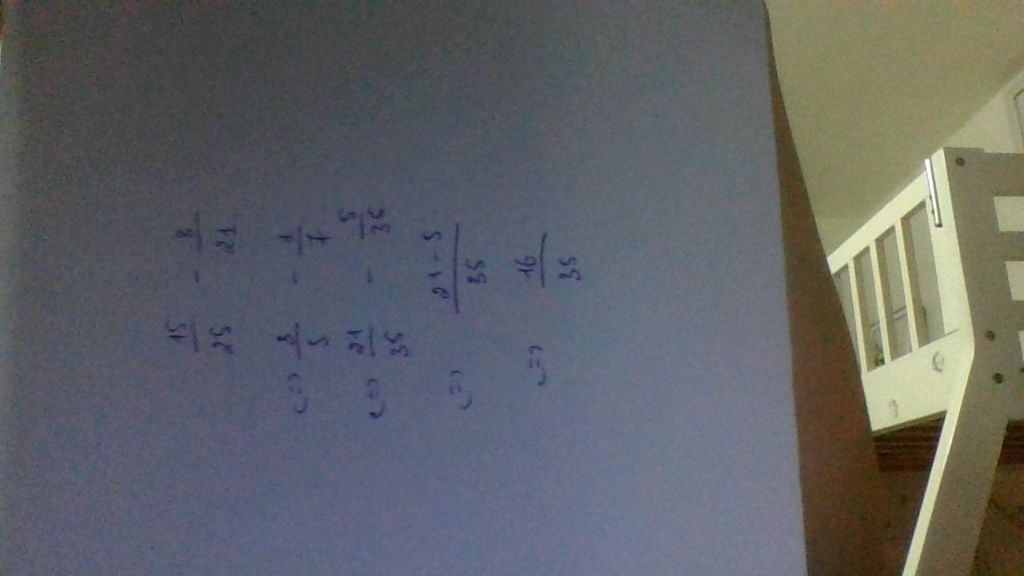 15/25 - 3/21
<=> 3/5 - 1/7
<=> 21/35 - 5/35
<=> 21-5/35
<=> 16/35